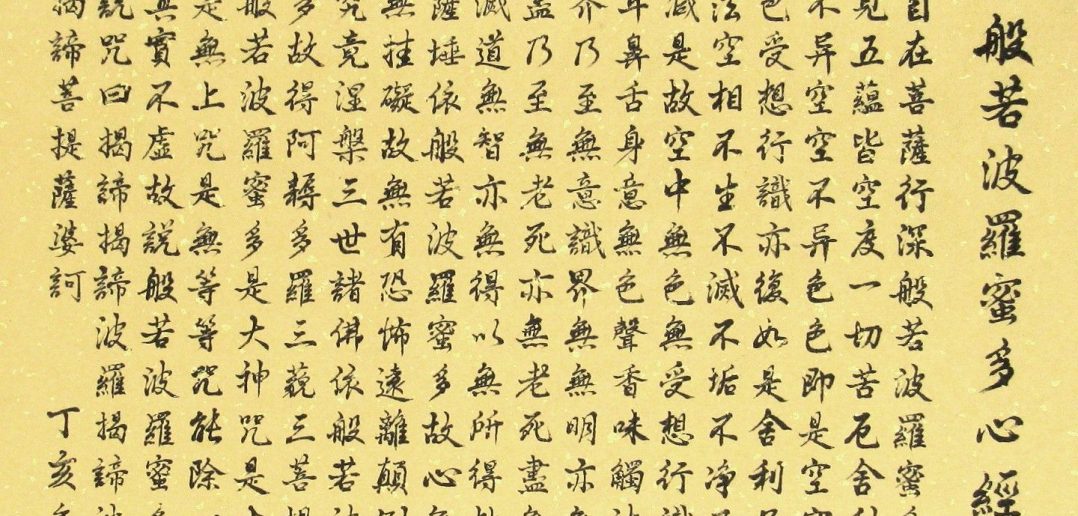 般若波羅蜜多心經
自在菩薩行深般若波羅蜜
見五蘊皆空度一切苦厄舍
不异空空不异色色即是空
色受想行識亦復如是舍利
法空相不生不滅不垢不净
减是故空中無色無受想行識
耳鼻舌身意無色聲香味觸
界乃至無意識界無無明亦
盡乃至無老死亦無老死盡
滅道無智亦無得以無所得
薩埵依般若波羅蜜多故心
無挂礙故無有恐怖遠離顛
究竟涅槃三世諸佛依般若
多故得阿耨多羅三藐三菩
般若波羅蜜多是大神咒是
是無上咒是無等等咒能除
真實不虛故説般若波羅蜜
説咒曰揭諦揭諦波羅揭諦
揭諦菩提薩婆訶
丁亥